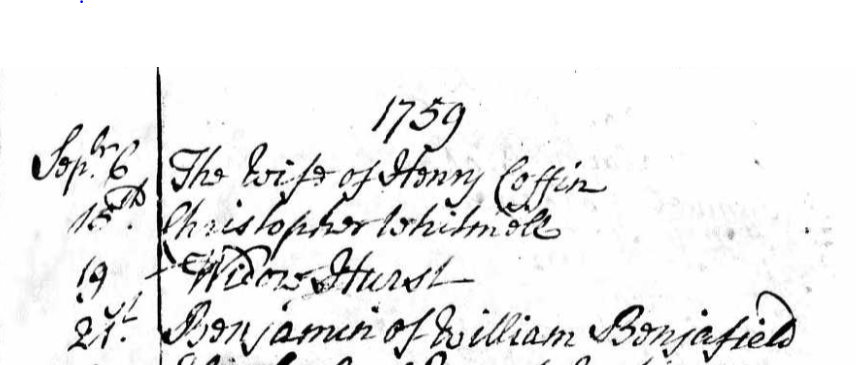 1759
Sepbr. 6 The Wife of Henry Coffin
15th. Christopher Whitmell
19 Widow Hurst
21st. Benjamin of William Benjafield